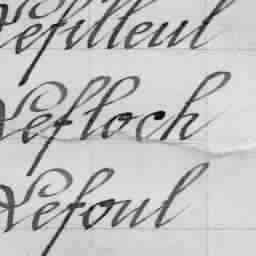 Lefilleul
Lefloch
Lefoul